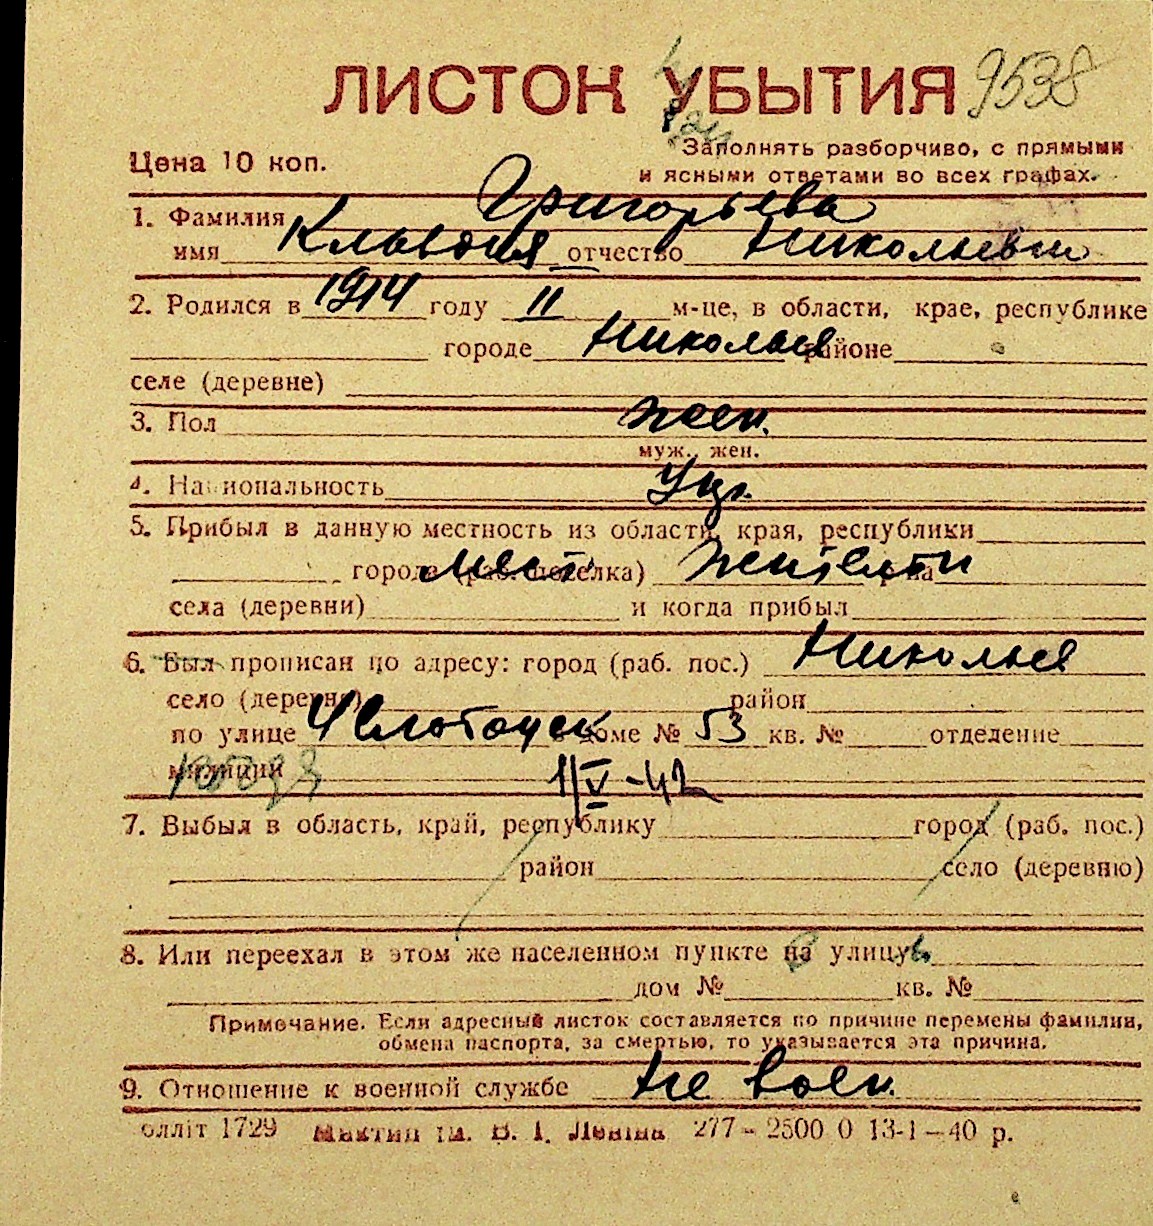 ЛИСТОК УБЫТИЯ 9538
Цена 10 коп.
Заполнять разборчиво, с прямыми
и ясными ответами во всех графах.
1. Фамилия Григорьева
имя Клавдия отчество Николаевна
2. Родился в 1914 году II м-це, в области, крае, республике
городе Николаев районе
селе (деревне)
3. Пол жен.
муж., жен.
4. Национальность Укр.
5. Прибыл в данную местность из области, края, республики
города (раб. поселка) мест. жительни
села (деревни) и когда прибыл
6. Был прописан по адресу: город (раб. пос.) Николаев
село (деревня) район
по улице 4 Слободск доме № 53 кв. № отделение
милиции
1/V-42
7. Выбыл в область, край, республику город (раб. пос.)
район село (деревню)
8. Или переехал в этом же населенном пункте на улицу
дом № кв. №
Примечание. Если адресный листок составляется по причине перемены фамилии,
обмена паспорта, за смертью, то указывается эта причина.
9. Отношение к военной службе не воен.
оллiт 1729 В. І. Ленiна 277 – 2500 0 13-1–40 р.